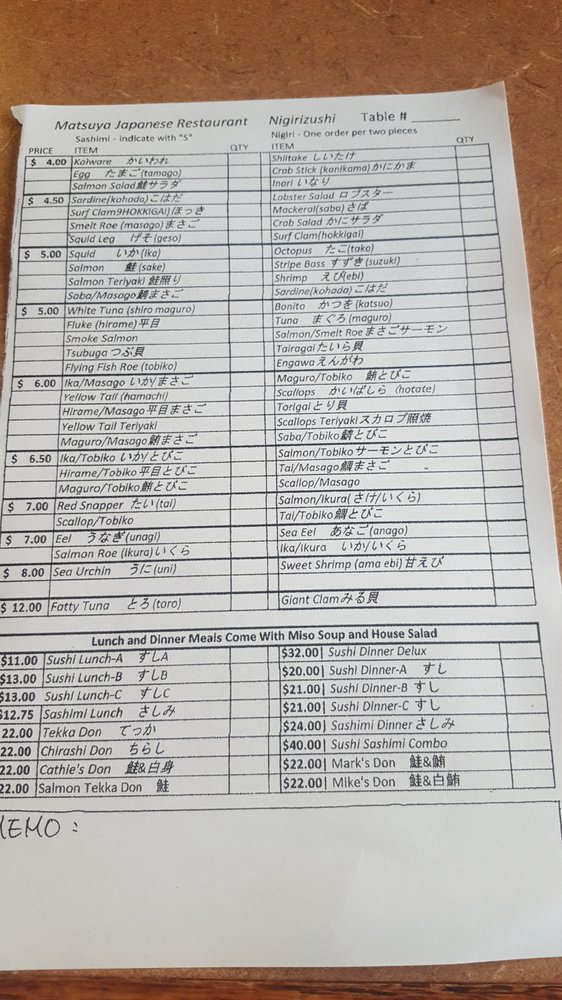 Matsuya Japanese Restaurant Nigirizushi Table # ______
Sashimi - indicate with "S" Nigiri - One order per two pieces
PRICE ITEM QTY ITEM QTY
$ 4.00 Kaiware かいわれ Shiitake しいたけ
Egg たまご(tamago) Crab Stick (kanikama)かにかま
Salmon Salad鮭サラダ Inari いなり
$ 4.50 Sardine(kohada)こはだ Lobster Salad ロブスター
Surf Clam9HOKKIGAI)ほっき Mackeral(saba)さば
Smelt Roe (masago)まさご Crab Salad かにサラダ
Squid Leg げそ(geso) Surf Clam(hokkigai)
$ 5.00 Squid いか(ika) Octopus たこ(tako)
Salmon 鮭(sake) Stripe Bass すずき(suzuki)
Salmon Teriyaki 鮭照り Shrimp えび(ebi)
Saba/Masago鯖まさご Sardine(kohada)こはだ
$ 5.00 White Tuna (shiro maguro) Bonito かつを(katsuo)
Fluke (hirame)平目 Tuna まぐろ(maguro)
Smoke Salmon Salmon/Smelt Roeまさごサーモン
Tsubuga つぶ貝 Tairagaiたいら貝
Flying Fish Roe (tobiko) Engawaえんがわ
$ 6.00 Ika/Masago いか/まさご Maguro/Tobiko 鮪とびこ
Yellow Tail (hamachi) Scallops かいばしら (hotate)
Hirame/Masago平目まさご Torigaiとり貝
Yellow Tail Teriyaki Scallops Teriyakiスカロプ照焼
Maguro/Masago鮪まさご Saba/Tobiko鯖とびこ
$ 6.50 Ika/Tobiko いか/とびこ Salmon/Tobikoサーモンとびこ
Hirame/Tobiko平目とびこ Tai/Masago鯛まさご
Maguro/Tobiko鮪とびこ Scallop/Masago
$ 7.00 Red Snapper たい(tai) Salmon/Ikura(さけ/いくら)
Scallop/Tobiko Tai/Tobiko鯛とびこ
$ 7.00 Eel うなぎ(unagi) Sea Eel あなご(anago)
Salmon Roe (Ikura)いくら Ika/Ikura いか/いくら
$ 8.00 Sea Urchin うに(uni) Sweet Shrimp (ama ebi)甘えび
$ 12.00 Fatty Tuna とろ(toro) Giant Clamみる貝
Lunch and Dinner Meals Come With Miso Soup and House Salad
$11.00 Sushi Lunch-A すしA $32.00 Sushi Dinner Delux
$13.00 Sushi Lunch-B すしB $20.00 Sushi Dinner-A すし
$13.00 Sushi Lunch-C すしC $21.00 Sushi Dinner-B すし
$12.75 Sashimi Lunch さしみ $21.00 Sushi Dinner-C すし
22.00 Tekka Don てっか $24.00 Sashimi Dinnerさしみ
22.00 Chirashi Don ちらし $40.00 Sushi Sashimi Combo
22.00 Cathie's Don 鮭&白身 $22.00 Mark's Don 鮭&鮪
22.00 Salmon Tekka Don 鮭 $22.00 Mike's Don 鮭&白鮪
MEMO :